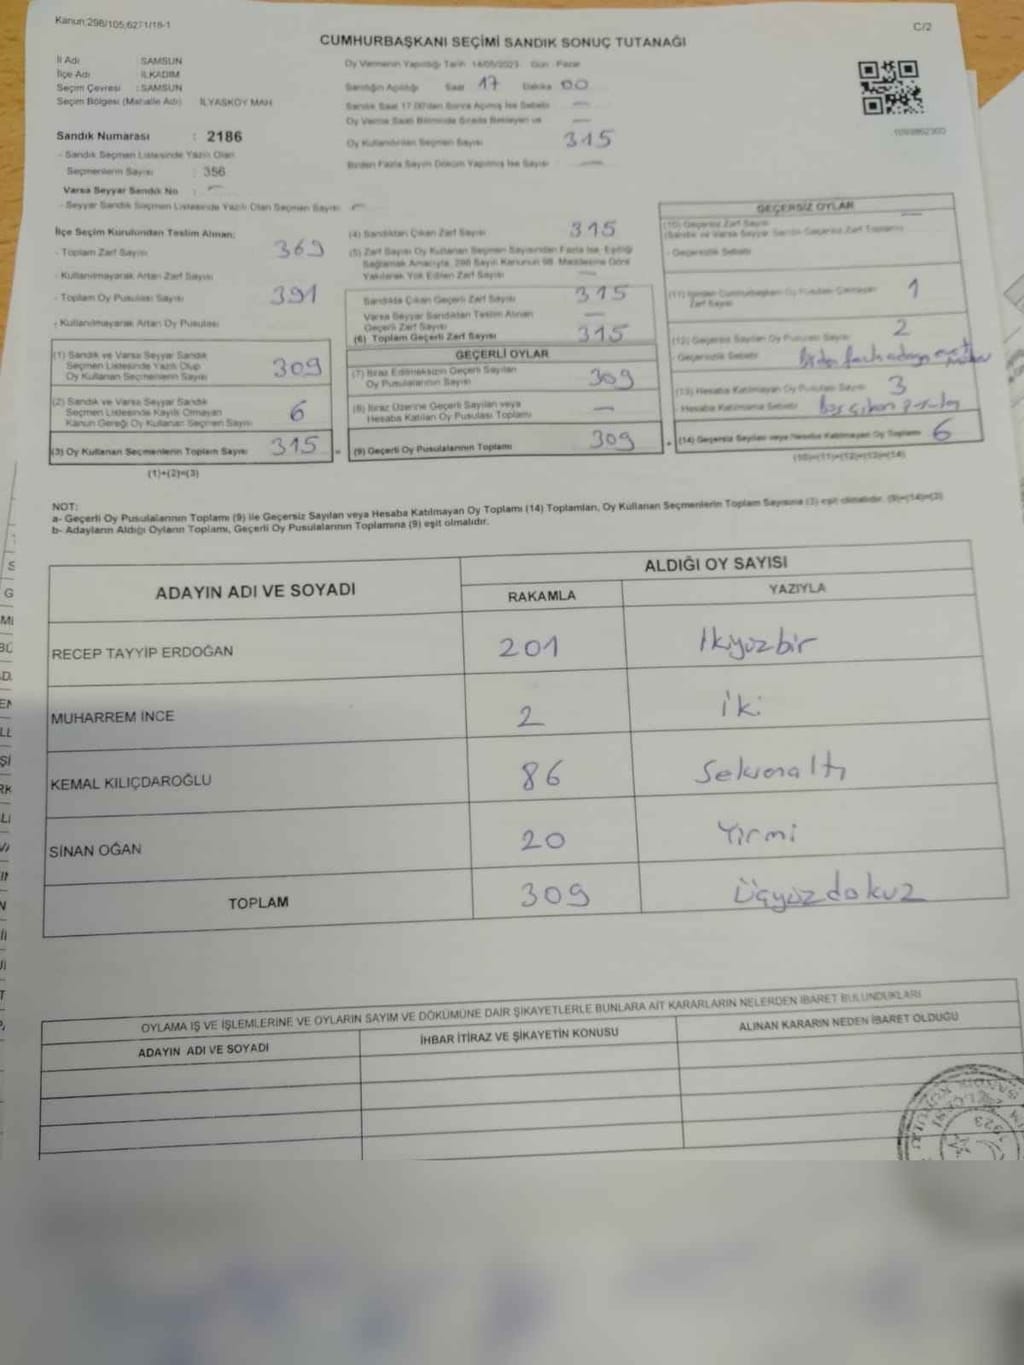 Kanun:298/105,6271/18-1
C/2
CUMHURBAŞKANI SEÇİMİ SANDIK SONUÇ TUTANAĞI
İl Adı SAMSUN
İlçe Adı İLKADIM
Seçim Çevresi : SAMSUN
Seçim Bölgesi (Mahalle Adı) İLYASKÖY MAH
Sandık Numarası : 2186
- Sandık Seçmen Listesinde Yazılı Olan
Seçmenlerin Sayısı : 356
Varsa Seyyar Sandık No : -
- Seyyar Sandık Seçmen Listesinde Yazılı Olan Seçmen Sayısı -
Oy Vermenin Yapıldığı Tarih 14/05/2023 Gün Pazar
Sandığın Açıldığı Saat 17 Dakika 00
Sandık Saat 17.00'den Sonra Açılmış İse Sebebi -
Oy Verme Saati Bitiminde Sırada Bekleyen -
Oy Kullandırılan Seçmen Sayısı 315
Birden Fazla Sayım Döküm Yapılmış İse Sayısı -
İlçe Seçim Kurulundan Teslim Alınan;
- Toplam Zarf Sayısı 369
- Kullanılmayarak Artan Zarf Sayısı
- Toplam Oy Pusulası Sayısı 391
- Kullanılmayarak Artan Oy Pusulası
(1) Sandık ve Varsa Seyyar Sandık
Seçmen Listesinde Yazılı Olup
Oy Kullanan Seçmenlerin Sayısı 309
(2) Sandık ve Varsa Seyyar Sandık
Seçmen Listesinde Kayıtlı Olmayan
Kanun Gereği Oy Kullanan Seçmen Sayısı 6
(3) Oy Kullanan Seçmenlerin Toplam Sayısı 315 =
(1)+(2)=(3)
(4) Sandıktan Çıkan Zarf Sayısı 315
(5) Zarf Sayısı Oy Kullanan Seçmen Sayısından Fazla İse, Eşitliği
Sağlamak Amacıyla, 298 Sayılı Kanunun 98. Maddesine Göre
Yakılarak Yok Edilen Zarf Sayısı -
Sandıkta Çıkan Geçerli Zarf Sayısı 315
Varsa Seyyar Sandıktan Teslim Alınan
Geçerli Zarf Sayısı -
(6) Toplam Geçerli Zarf Sayısı 315
GEÇERLİ OYLAR
(7) İtiraz Edilmeksizin Geçerli Sayılan
Oy Pusulalarının Sayısı 309
(8) İtiraz Üzerine Geçerli Sayılan veya
Hesaba Katılan Oy Pusulası Toplamı -
(9) Geçerli Oy Pusulalarının Toplamı 309 +
GEÇERSİZ OYLAR
(10) Geçersiz Zarf Sayısı -
(Sandık ve Varsa Seyyar Sandık Geçersiz Zarf Toplamı)
- Geçersizlik Sebebi
(11) İçinden Cumhurbaşkanı Oy Pusulası Çıkmayan
Zarf Sayısı 1
(12) Geçersiz Sayılan Oy Pusulası Sayısı 2
- Geçersizlik Sebebi Birden fazla adaya evet
(13) Hesaba Katılmayan Oy Pusulası Sayısı 3
- Hesaba Katılmama Sebebi Boş çıkan pusula
(14) Geçersiz Sayılan veya Hesaba Katılmayan Oy Toplamı 6
(10)+(11)+(12)+(13)=(14)
NOT:
a- Geçerli Oy Pusulalarının Toplamı (9) ile Geçersiz Sayılan veya Hesaba Katılmayan Oy Toplamı (14) Toplamları, Oy Kullanan Seçmenlerin Toplam Sayısına (3) eşit olmalıdır. (9)+(14)=(3)
b- Adayların Aldığı Oyların Toplamı, Geçerli Oy Pusulalarının Toplamına (9) eşit olmalıdır.
ADAYIN ADI VE SOYADI
ALDIĞI OY SAYISI
RAKAMLA YAZIYLA
RECEP TAYYİP ERDOĞAN 201 İkiyüzbir
MUHARREM İNCE 2 iki
KEMAL KILIÇDAROĞLU 86 Seksenaltı
SİNAN OĞAN 20 Yirmi
TOPLAM 309 Üçyüzdokuz
OYLAMA İŞ VE İŞLEMLERİNE VE OYLARIN SAYIM VE DÖKÜMÜNE DAİR ŞİKAYETLERLE BUNLARA AİT KARARLARIN NELERDEN İBARET BULUNDUKLARI
ADAYIN ADI VE SOYADI İHBAR İTİRAZ VE ŞİKAYETİN KONUSU ALINAN KARARIN NEDEN İBARET OLDUĞU